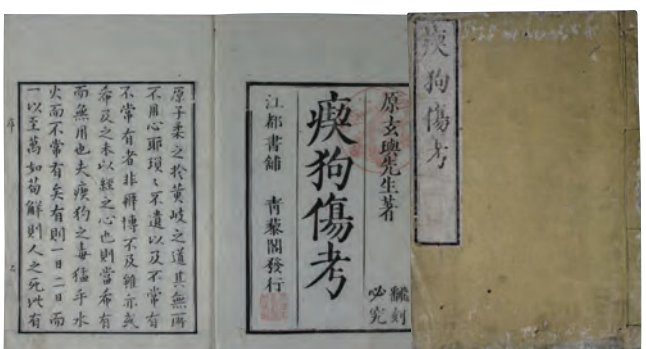 瘈狗傷考
原玄與先生著
瘈狗傷考
翻刻
必究
江都書舖 青藜閣發行
原子柔之於黃岐之道其無所
不用心耶瑣〻不遺以及不常有
不常有者非辨博不及雖亦或
希及之未以經之心也則當希有
而無用也夫瘈狗之毒猛乎水
火而不常有矣有則一日二日而
一以至萬如苟解則人之死此有
序